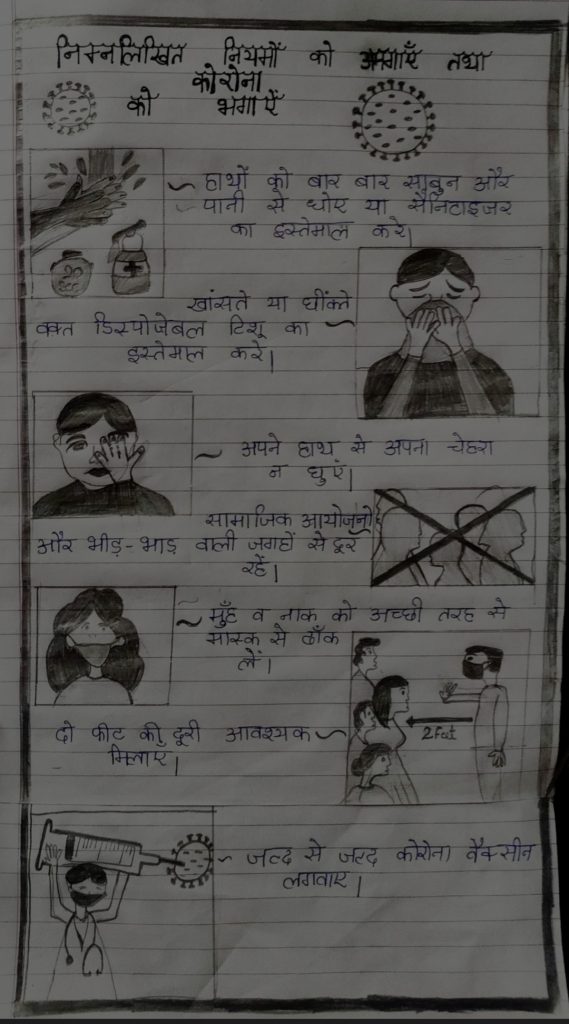 निम्नलिखित नियमों को अपनाएँ तथा
कोरोना
को भगाऐं
हाथों को बार बार साबुन और
पानी से धोए या सैनिटाइजर
का इस्तेमाल करे।
खांसते या छींकते
वक्त डिस्पोजेबल टिशू का
इस्तेमाल करे।
अपने हाथ से अपना चेहरा
न छुएं।
सामाजिक आयोजनो
और भीड़-भाड़ वाली जगहों से दूर
रहें।
मुँह व नाक को अच्छी तरह से
मास्क से ढाँक
लें।
2Feet
दो फीट की दूरी आवश्यक
जल्द से जल्द कोरोना वैक्सीन
लगवाए।